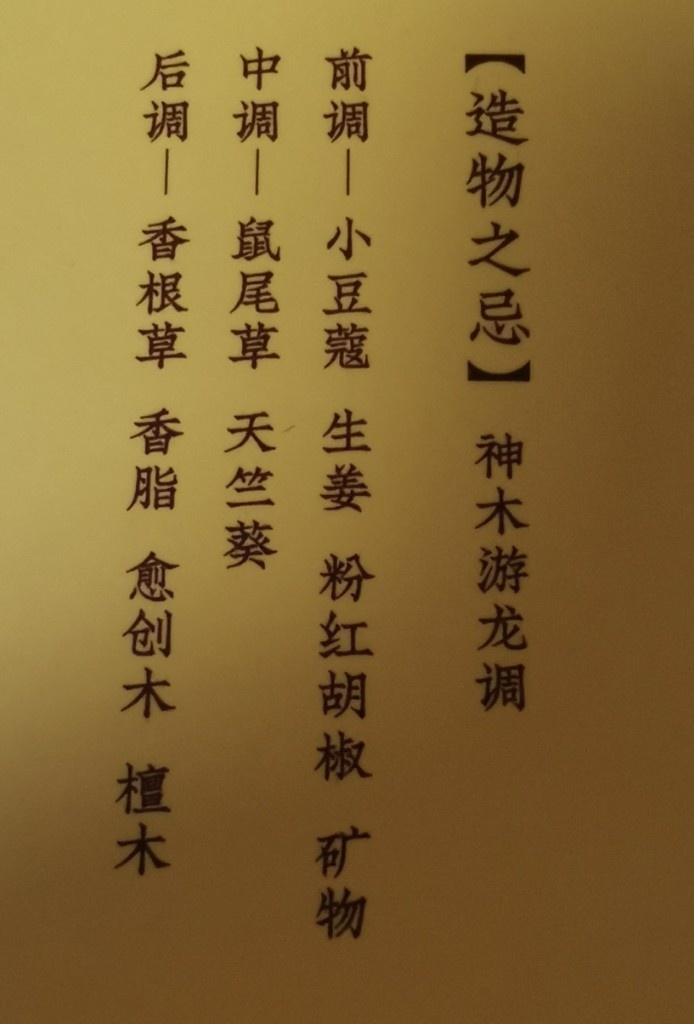 【造物之忌】 神木游龙调
前调—小豆蔻 生姜 粉红胡椒 矿物
中调—鼠尾草 天竺葵
后调—香根草 香脂 愈创木 檀木